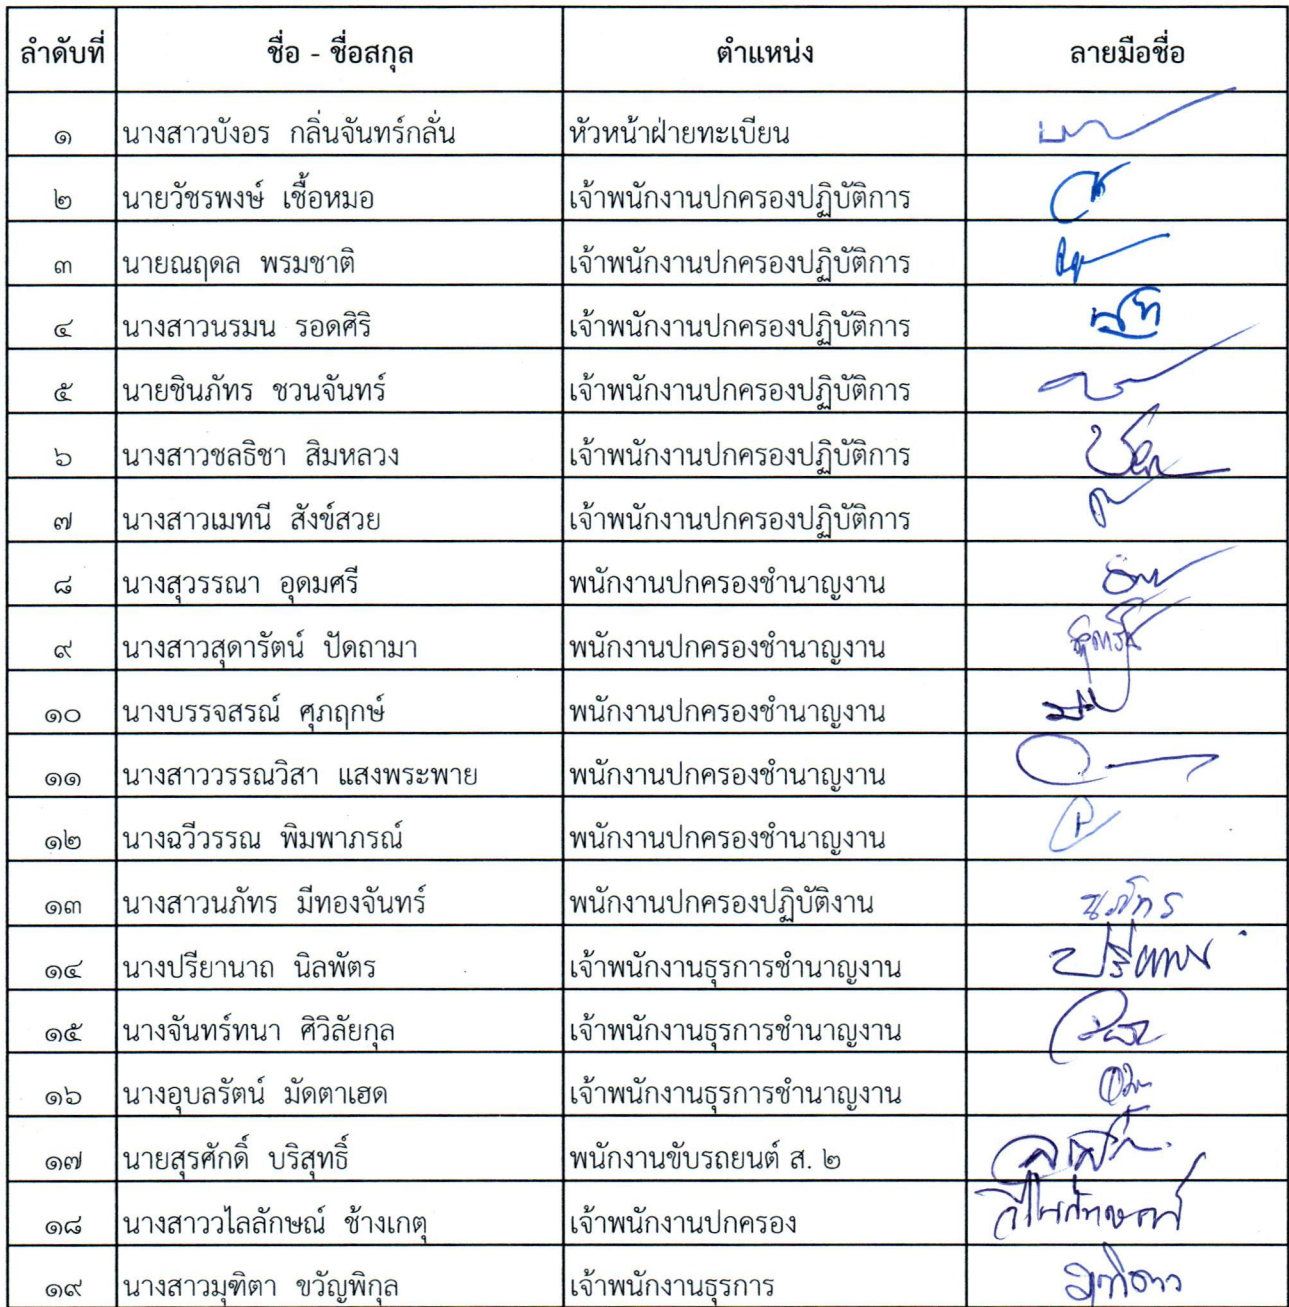 ลำดับที่ ชื่อ - ชื่อสกุล ตำแหน่ง ลายมือชื่อ
๑ นางสาวบังอร กลิ่นจันทร์กลั่น หัวหน้าฝ่ายทะเบียน
๒ นายวัชรพงษ์ เชื้อหมอ เจ้าพนักงานปกครองปฏิบัติการ
๓ นายณฤดล พรมชาติ เจ้าพนักงานปกครองปฏิบัติการ
๔ นางสาวนรมน รอดศิริ เจ้าพนักงานปกครองปฏิบัติการ
๕ นายชินภัทร ชวนจันทร์ เจ้าพนักงานปกครองปฏิบัติการ
๖ นางสาวชลธิชา สิมหลวง เจ้าพนักงานปกครองปฏิบัติการ
๗ นางสาวเมทนี สังข์สวย เจ้าพนักงานปกครองปฏิบัติการ
๘ นางสุวรรณา อุดมศรี พนักงานปกครองชำนาญงาน
๙ นางสาวสุดารัตน์ ปัดถามา พนักงานปกครองชำนาญงาน
๑๐ นางบรรจสรณ์ ศุภฤกษ์ พนักงานปกครองชำนาญงาน
๑๑ นางสาววรรณวิสา แสงพระพาย พนักงานปกครองชำนาญงาน
๑๒ นางฉวีวรรณ พิมพาภรณ์ พนักงานปกครองชำนาญงาน
๑๓ นางสาวนภัทร มีทองจันทร์ พนักงานปกครองปฏิบัติงาน นภัทร
๑๔ นางปรียานาถ นิลพัตร เจ้าพนักงานธุรการชำนาญงาน
๑๕ นางจันทร์ทนา ศิวิลัยกุล เจ้าพนักงานธุรการชำนาญงาน
๑๖ นางอุบลรัตน์ มัดตาเฮด เจ้าพนักงานธุรการชำนาญงาน
๑๗ นายสุรศักดิ์ บริสุทธิ์ พนักงานขับรถยนต์ ส. ๒
๑๘ นางสาววไลลักษณ์ ช้างเกตุ เจ้าพนักงานปกครอง
๑๙ นางสาวมุฑิตา ขวัญพิกุล เจ้าพนักงานธุรการ